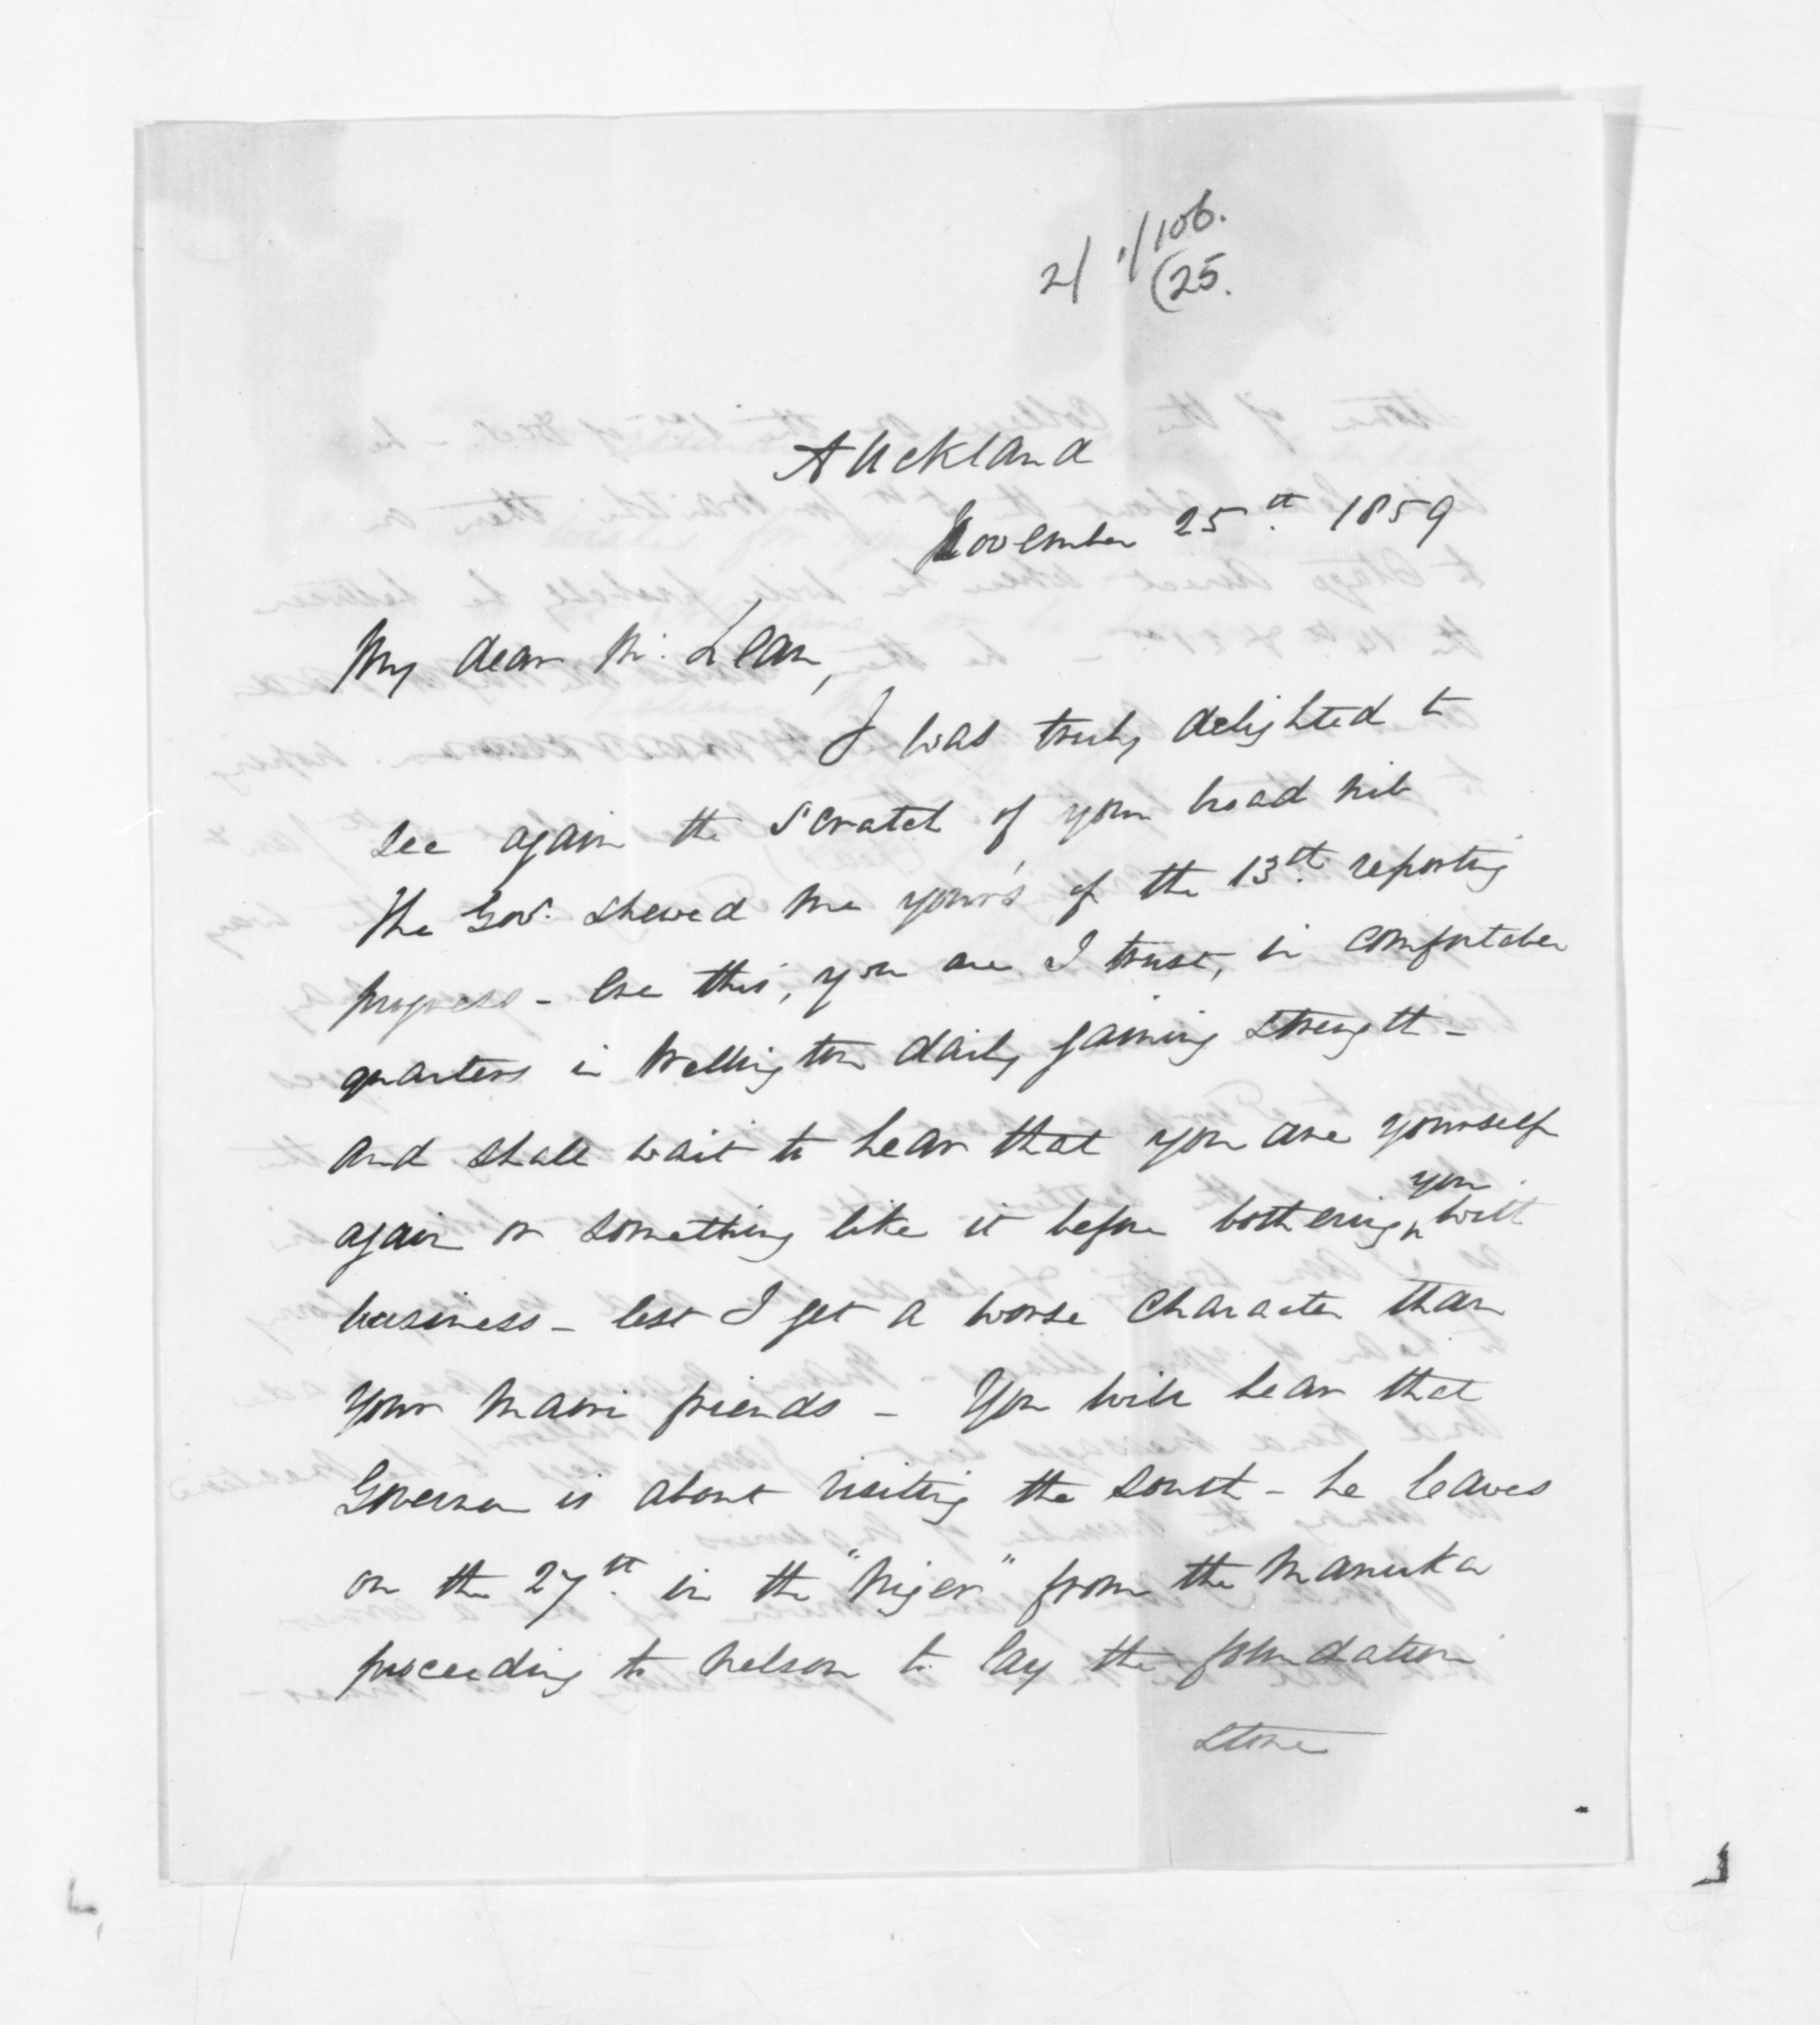 2/ 1/106.
(25.
Auckland
November 25th 1859
My dear Mc Lean,
I was truly delighted to
see again the scratch of your broad nib
The Govr. shewed me your's of the 13th reporting
progress - Ere this, you are I trust, in comfortable
quarters in Wellington daily gaining strength -
and shall wait to hear that you are yourself
again or something like it before bothering you with
business - lest I get a worse character than
your Maori friends - You will hear that
Governor is about visiting the South - he leaves
on the 27th in the "Niger" from the Manuka
proceeding to Nelson to lay the foundation
stone